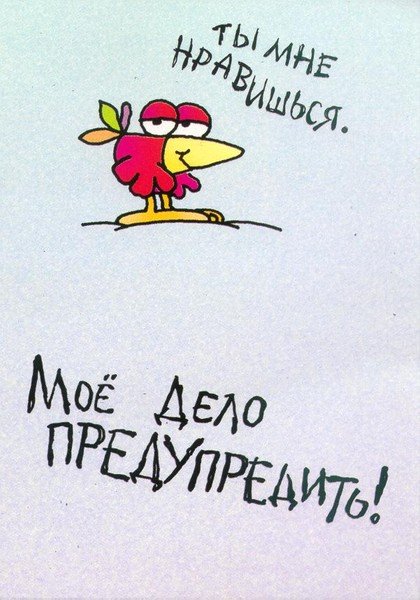 ТЫ МНЕ
НРАВИШЬСЯ.
МОЁ ДЕЛО
ПРЕДУПРЕДИТЬ!